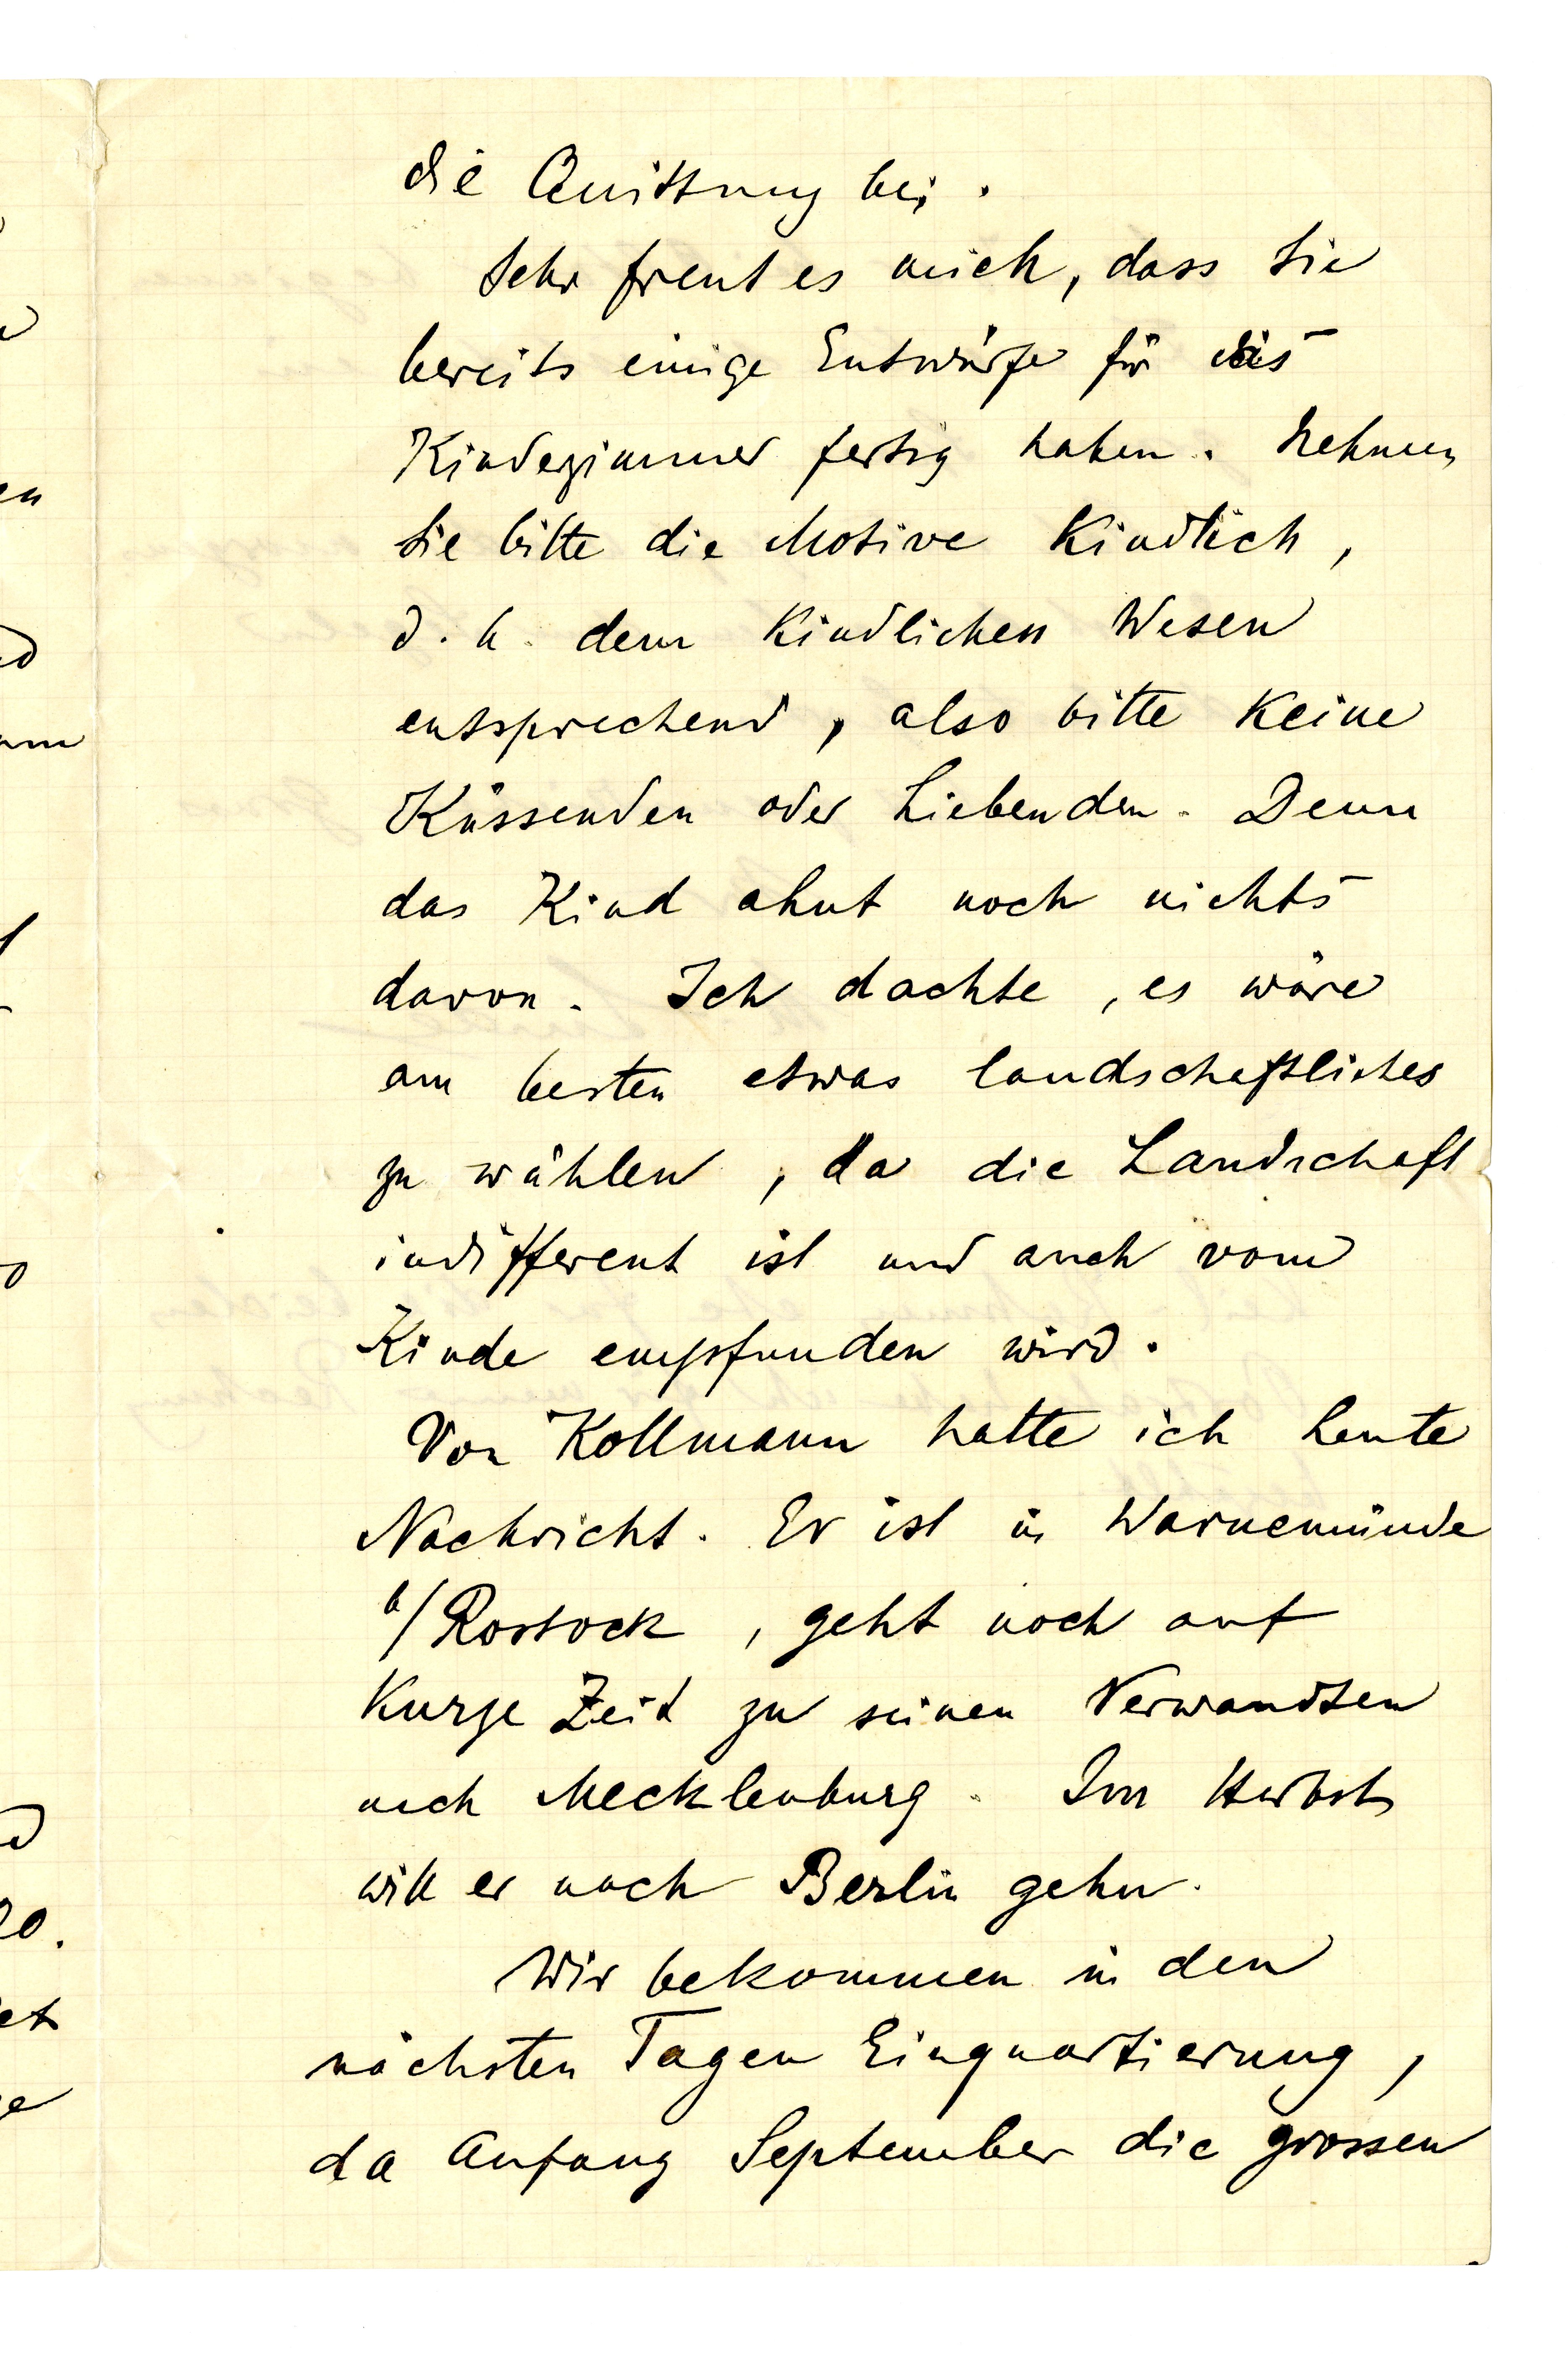 die Quittung bei.
Sehr freut es mich, dass Sie
bereits einige Entwürfe für das
Kinderzimmer fertig haben. Nehmen
Sie bitte die Motive kindlich,
d. h. dem kindlichen Wesen
entsprechend, also bitte keine
Küssenden oder Liebenden. Denn
das Kind ahnt noch nichts
davon. Ich dachte, es wäre
am besten etwas landschaftliches
zu wählen, da die Landschaft
indifferent ist und auch vom
Kinde empfunden wird.
Von Kollmann hatte ich heute
Nachricht. Er ist in Warnemünde
b/Rostock, geht noch auf
kurze Zeit zu seinen Verwandten
nach Mecklenburg. Im Herbst
will er nach Berlin gehn.
Wir bekommen in den
nächsten Tagen Einquartierung,
da Anfang September die grossen